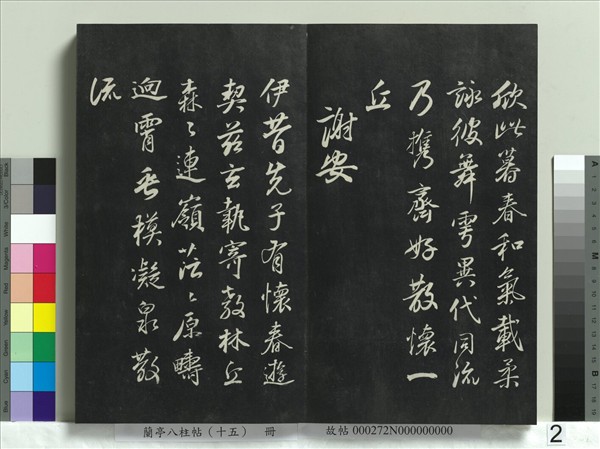 欣此暮春和氣載柔
詠彼舞雩異代同流
乃攜齊好散懷一
丘
謝安
伊昔先子有懷春遊
契茲玄執寄敖林丘
森々連嶺茫々原疇
迥霄垂模凝泉散
流
蘭亭八柱帖（十五） 冊
故帖 000272N000000000
2